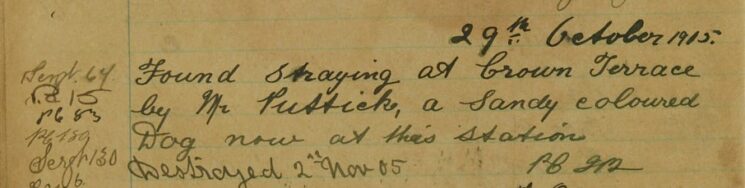 29th October 1905.
Sergt. 64 Found Straying at Crown Terrace
P.C. 15
PC 83 by Mr Puttick, a Sandy coloured
PC 139 Dog now at this Station
Sergt 130 Destroyed 2nd Nov 05. PC